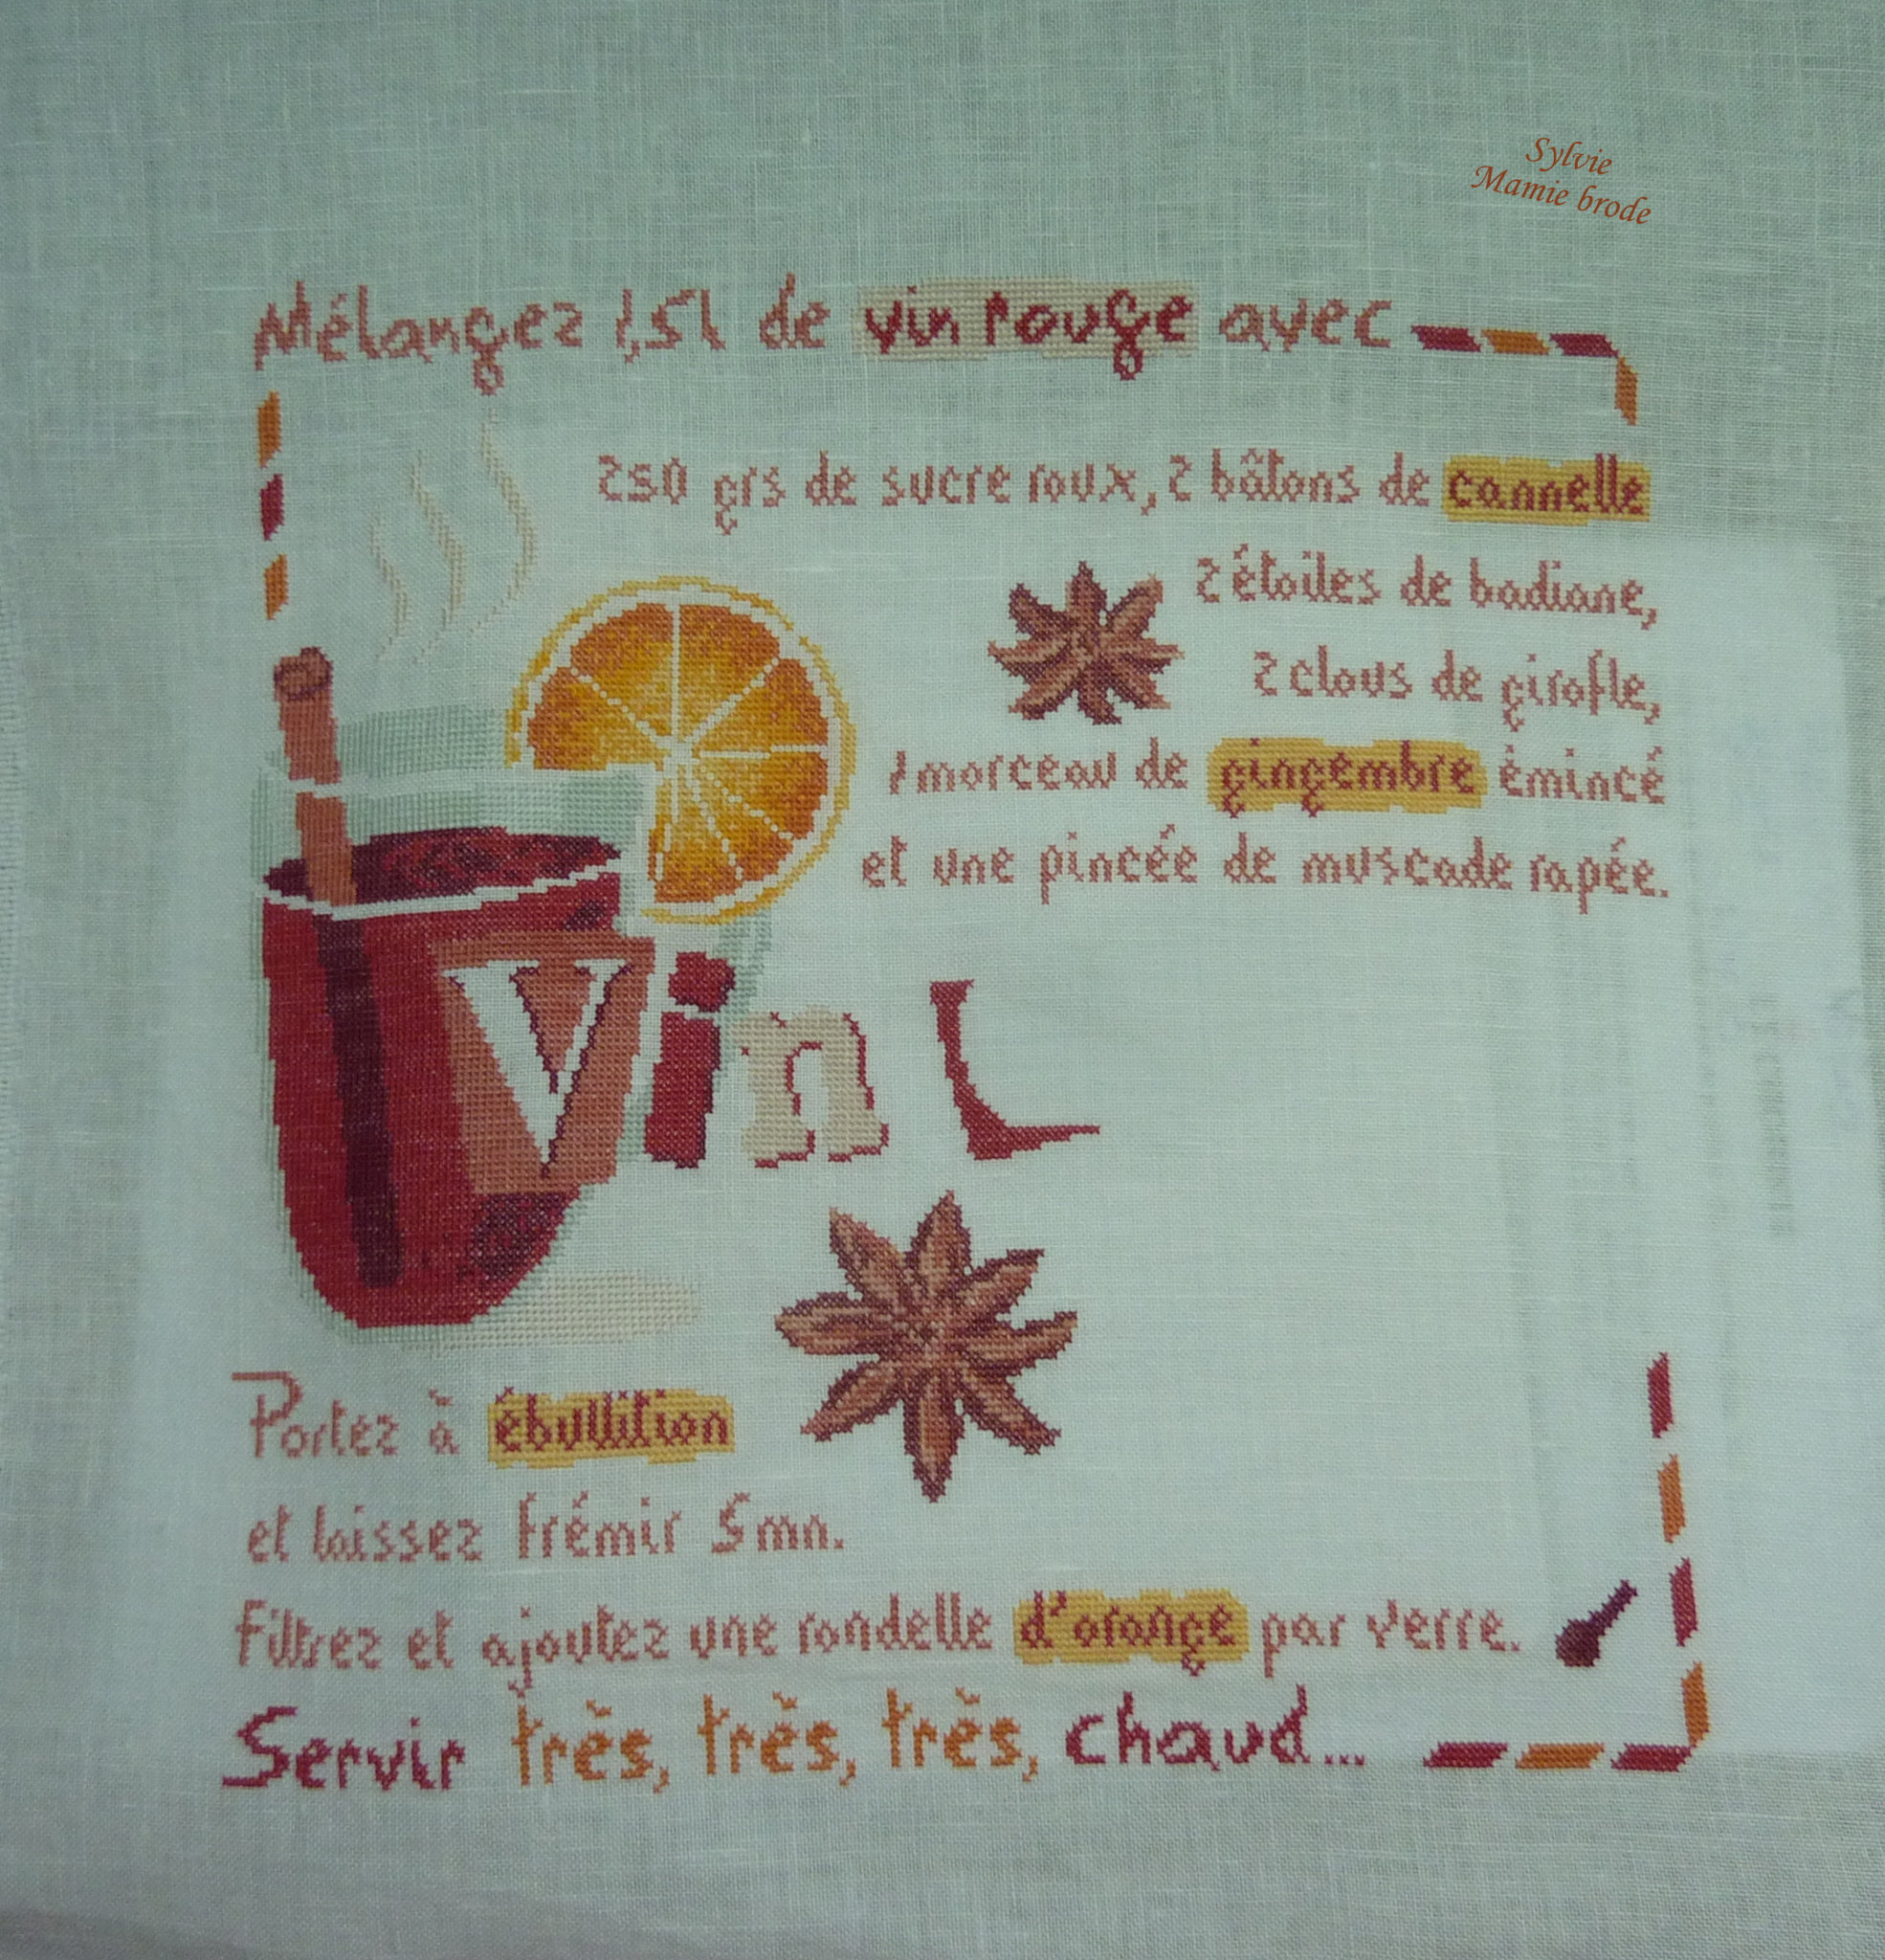 Sylvie
Mamie brode
Mélangez 1,5l de vin rouge avec
250 grs de sucre roux, 2 bâtons de cannelle
2 étoiles de badiane,
2 clous de girofle,
1 morceau de gingembre émincé
et une pincée de muscade rapée.
Vin L
Portez à ébullition
et laissez frémir 5 mn.
Filtrez et ajoutez une rondelle d'orange par verre.
Servir très, très, très, chaud...